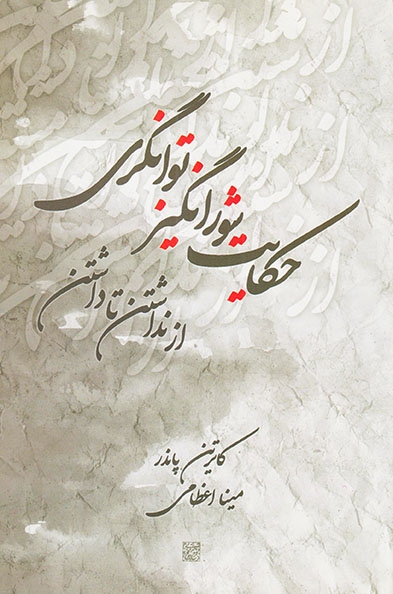 حکایت شورانگیز توانگری
از نداشتن تا داشتن
کاترین پاندر
مینا اعظامی